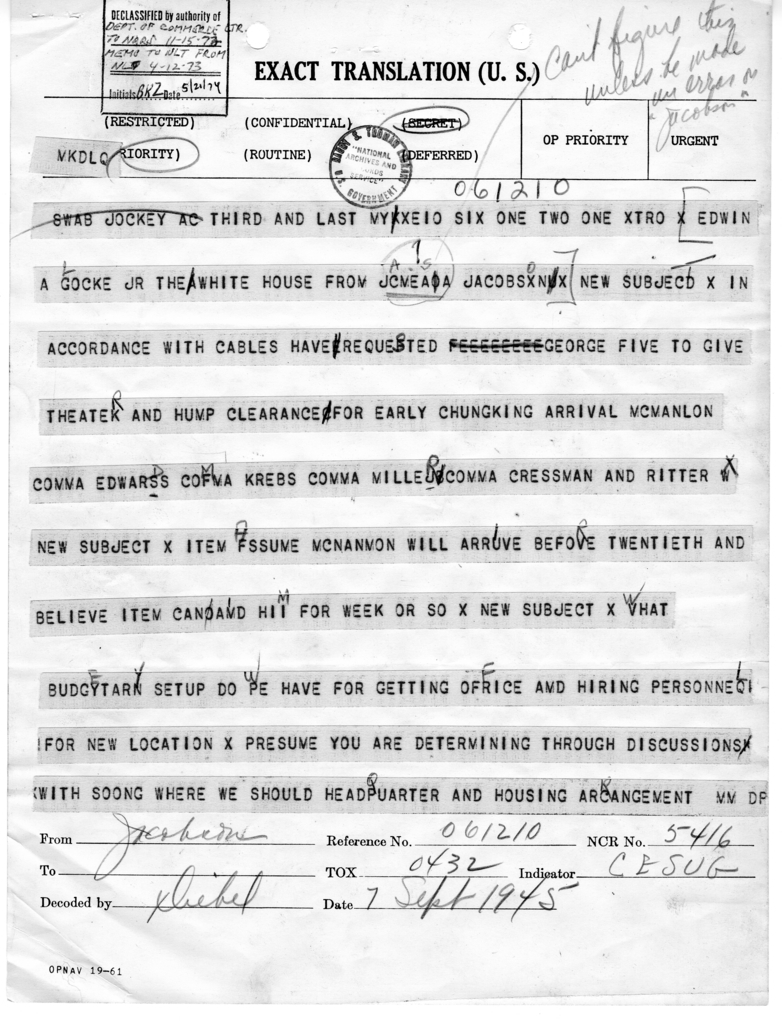 DECLASSIFIED by authority of
DEPT. OF COMMERCE LTR.
TO NARS 11-15-72
MEMO TO NLT FROM
NLT 4-12-73
Initials BKZ Date 5/21/74
Can't figure this
unless he made
an error on
"Jacobson"
EXACT TRANSLATION (U. S.)
(RESTRICTED) (CONFIDENTIAL) (SECRET)
OP PRIORITY URGENT
MKDLQ RIORITY) (ROUTINE) (DEFERRED)
HARRY S. TRUMAN LIBRARY
"NATIONAL
ARCHIVES AND
RECORDS
SERVICE"
U.S. GOVERNMENT
061210
SWAB JOCKEY AC THIRD AND LAST MY XEIO SIX ONE TWO ONE XTRO X EDWIN
A GOCKE JR THE WHITE HOUSE FROM JCMEAOA JACOBSXN X NEW SUBJECD X IN
ACCORDANCE WITH CABLES HAVE REQUESTED EEEEEEEEE GEORGE FIVE TO GIVE
THEATEK AND HUMP CLEARANCE FOR EARLY CHUNGKING ARRIVAL MCMANLON
COMMA EDWARSS COFMA KREBS COMMA MILLE COMMA CRESSMAN AND RITTER W
NEW SUBJECT X ITEM FSSUME MCNANMON WILL ARRUVE BEFOVE TWENTIETH AND
BELIEVE ITEM CAN AMD HII FOR WEEK OR SO X NEW SUBJECT X VHAT
BUDGYTARN SETUP DO PE HAVE FOR GETTING OFRICE AMD HIRING PERSONNEQ
FOR NEW LOCATION X PRESUME YOU ARE DETERMINING THROUGH DISCUSSIONS
WITH SOONG WHERE WE SHOULD HEADPUARTER AND HOUSING ARCANGEMENT MM DP
From Jacobson Reference No. 061210 NCR No. 5416
To TOX 0432 Indicator CESUG
Decoded by Date 7 Sept 1945
OPNAV 19-61